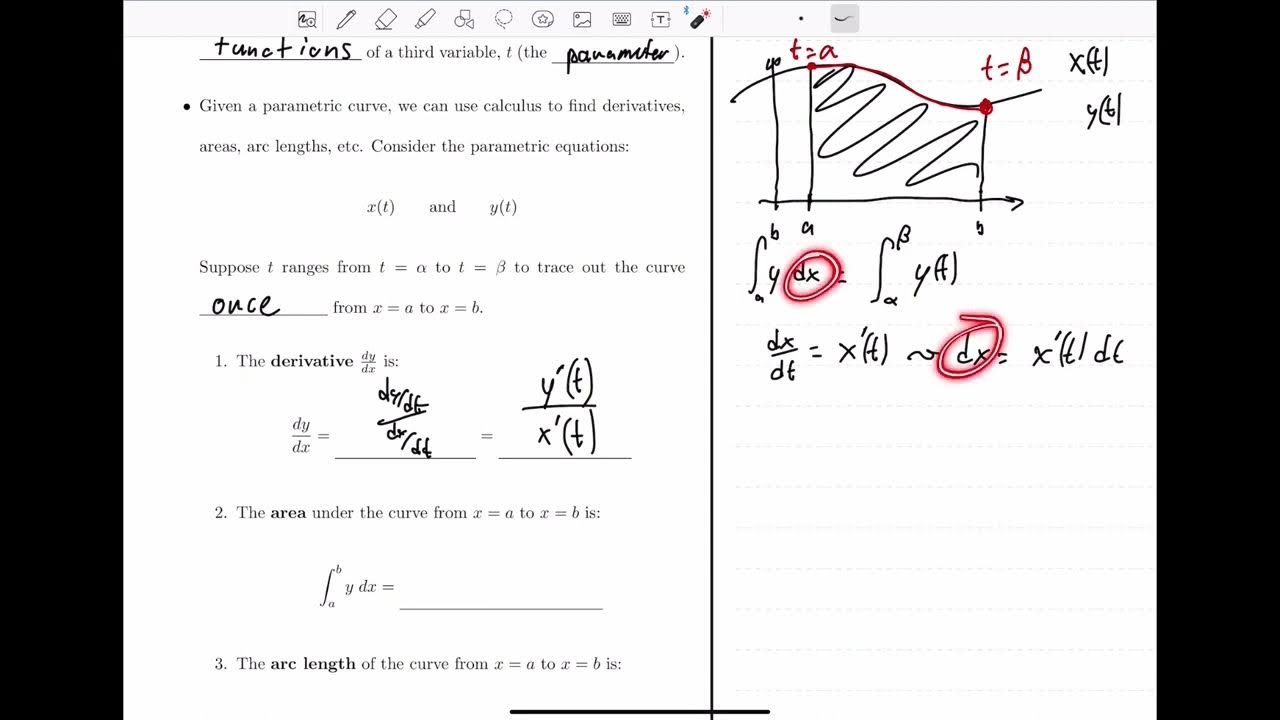 functions of a third variable, t (the parameter).
• Given a parametric curve, we can use calculus to find derivatives,
areas, arc lengths, etc. Consider the parametric equations:
x(t) and y(t)
Suppose t ranges from t = α to t = β to trace out the curve
once from x = a to x = b.
1. The derivative dy/dx is:
dy/dx = (dy/dt)/(dx/dt) = y'(t)/x'(t)
2. The area under the curve from x = a to x = b is:
∫_a^b y dx =
3. The arc length of the curve from x = a to x = b is:
t=α
t=β
x(t)
y(t)
a b
∫_a^b y dx = ∫_α^β y(t)
dx/dt = x'(t) ~ dx = x'(t) dt
T